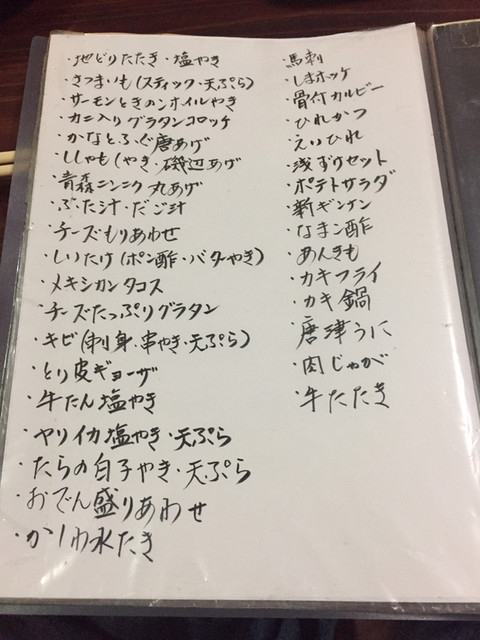 ・地どりたたき・塩やき
・さつまいも(スティック・天ぷら)
・サーモンときのこホイルやき
・カニ入りグラタンコロッケ
・かなとふぐ唐あげ
・ししゃも(やき・磯辺あげ)
・青森ニンニク丸あげ
・ぶた汁・だご汁
・チーズもりあわせ
・しいたけ(ポン酢・バターやき)
・メキシカンタコス
・チーズたっぷりグラタン
・キビ(刺身・串やき・天ぷら)
・とり皮ギョーザ
・牛たん塩やき
・ヤリイカ塩やき・天ぷら
・たらの白子やき・天ぷら
・おでん盛りあわせ
・かしわ水たき
・馬刺
・しまホッケ
・骨付カルビー
・ひれかつ
・えいひれ
・浅ずけセット
・ポテトサラダ
・新ギンナン
・なまこ酢
・あんきも
・カキフライ
・カキ鍋
・唐津うに
・肉じゃが
・牛たたき